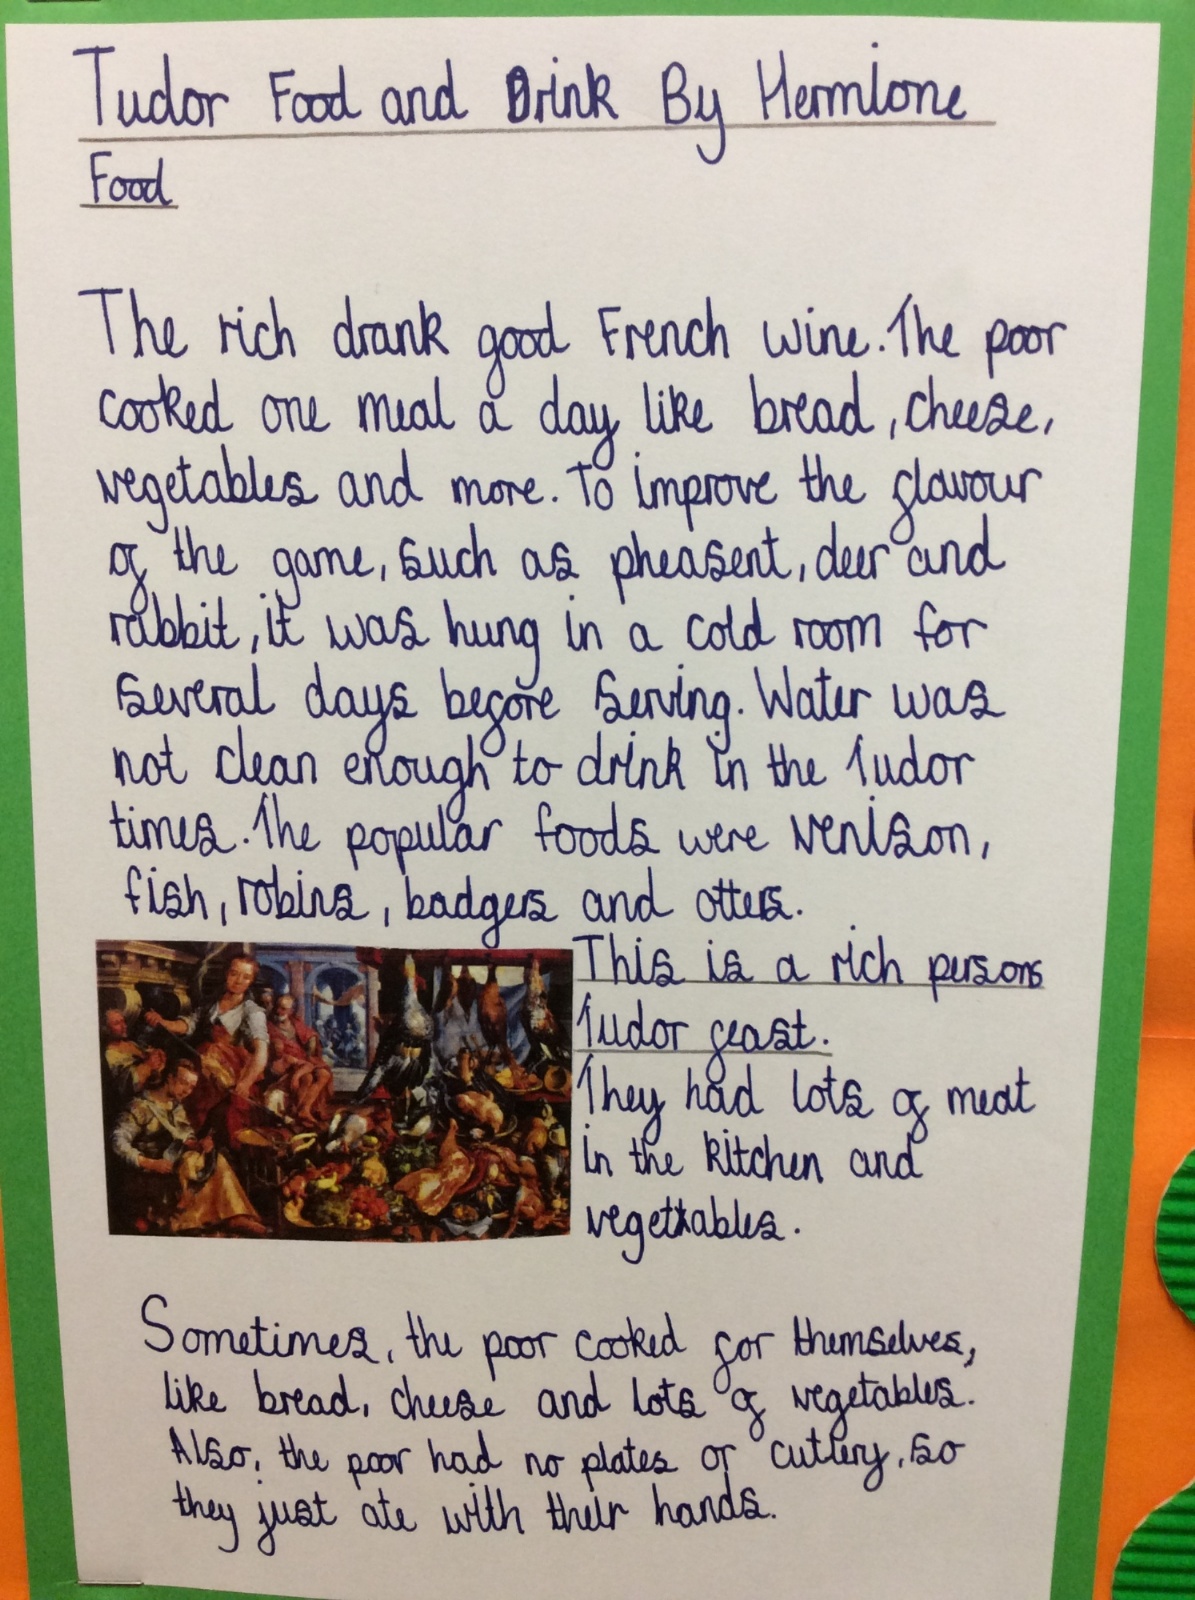 Tudor Food and Drink By Hermione
Food
The rich drank good French wine. The poor
cooked one meal a day like bread, cheese,
vegetables and more. To improve the flavour
of the game, such as pheasent, deer and
rabbit, it was hung in a cold room for
several days before serving. Water was
not clean enough to drink in the Tudor
times. The popular foods were venison,
fish, robins, badgers and otters.
This is a rich persons
Tudor feast.
They had lots of meat
in the kitchen and
vegetables.
Sometimes, the poor cooked for themselves,
like bread, cheese and lots of vegetables.
Also, the poor had no plates or cutlery, so
they just ate with their hands.